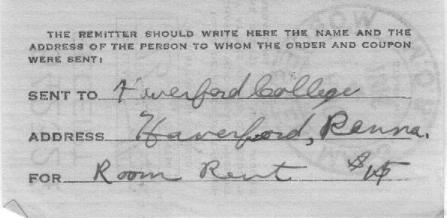 THE REMITTER SHOULD WRITE HERE THE NAME AND THE
ADDRESS OF THE PERSON TO WHOM THE ORDER AND COUPON
WERE SENT:
SENT TO Haverford College
ADDRESS Haverford, Penna.
FOR Room Rent $15